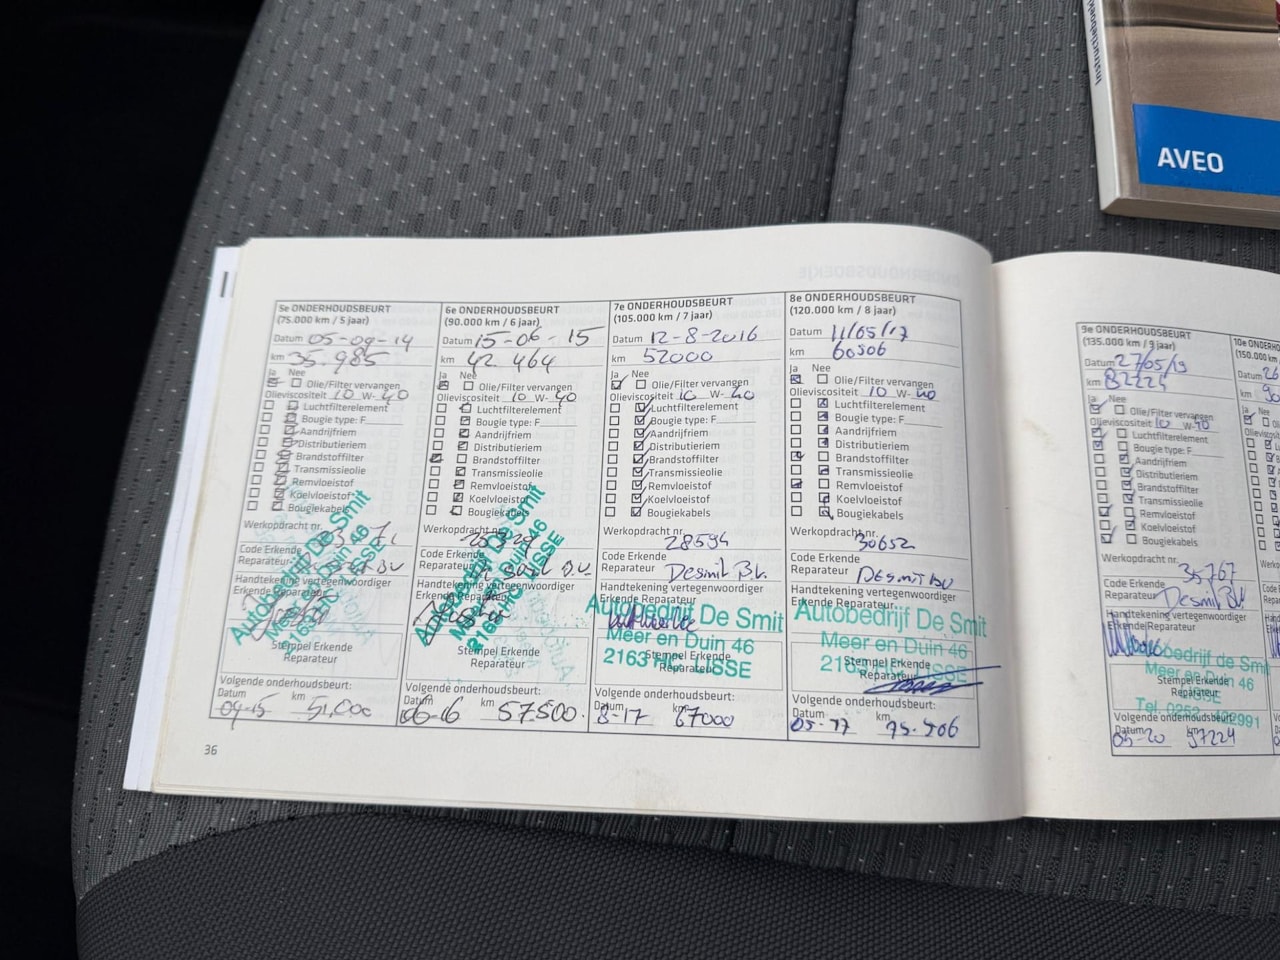 Instructieboekje
AVEO
5e ONDERHOUDSBEURT
(75.000 km / 5 jaar)
Datum 05-09-14
km 35.985
Ja Nee
Olie/Filter vervangen
Olieviscositeit 10 W-40
Luchtfilterelement
Bougie type: F
Aandrijfriem
Distributieriem
Brandstoffilter
Transmissieolie
Remvloeistof
Koelvloeistof
Bougiekabels
Werkopdracht nr.
Code Erkende
Reparateur
Handtekening vertegenwoordiger
Erkende Reparateur
Autobedrijf De Smit
Meer en Duin 46
Stempel Erkende
Reparateur
Volgende onderhoudsbeurt:
Datum km
09-15 51.000
36
6e ONDERHOUDSBEURT
(90.000 km / 6 jaar)
Datum 15-06-15
km 42.464
Ja Nee
Olie/Filter vervangen
Olieviscositeit 10 W-40
Luchtfilterelement
Bougie type: F
Aandrijfriem
Distributieriem
Brandstoffilter
Transmissieolie
Remvloeistof
Koelvloeistof
Bougiekabels
Werkopdracht nr.
Code Erkende
Reparateur
Handtekening vertegenwoordiger
Erkende Reparateur
Autobedrijf De Smit
Meer en Duin 46
2163 HC LISSE
Stempel Erkende
Reparateur
Volgende onderhoudsbeurt:
Datum km
06-16 57.500
7e ONDERHOUDSBEURT
(105.000 km / 7 jaar)
Datum 12-8-2016
km 52000
Ja Nee
Olie/Filter vervangen
Olieviscositeit 10 W-40
Luchtfilterelement
Bougie type: F
Aandrijfriem
Distributieriem
Brandstoffilter
Transmissieolie
Remvloeistof
Koelvloeistof
Bougiekabels
Werkopdracht nr.
28594
Code Erkende
Reparateur Desmit B.V.
Handtekening vertegenwoordiger
Erkende Reparateur
Autobedrijf De Smit
Meer en Duin 46
2163 HC LISSE
Stempel Erkende
Reparateur
Volgende onderhoudsbeurt:
Datum km
8-17 67000
8e ONDERHOUDSBEURT
(120.000 km / 8 jaar)
Datum 11/05/17
km 60506
Ja Nee
Olie/Filter vervangen
Olieviscositeit 10 W-40
Luchtfilterelement
Bougie type: F
Aandrijfriem
Distributieriem
Brandstoffilter
Transmissieolie
Remvloeistof
Koelvloeistof
Bougiekabels
Werkopdracht nr.
30652
Code Erkende
Reparateur Desmit BV
Handtekening vertegenwoordiger
Erkende Reparateur
Autobedrijf De Smit
Meer en Duin 46
2163 HC LISSE
Stempel Erkende
Reparateur
Volgende onderhoudsbeurt:
Datum km
75.506
9e ONDERHOUDSBEURT
(135.000 km / 9 jaar)
Datum 27/05/19
km 82224
Ja Nee
Olie/Filter vervangen
Olieviscositeit 10 W-40
Luchtfilterelement
Bougie type: F
Aandrijfriem
Distributieriem
Brandstoffilter
Transmissieolie
Remvloeistof
Koelvloeistof
Bougiekabels
Werkopdracht nr.
35767
Code Erkende
Reparateur Desmit B.V.
Handtekening vertegenwoordiger
Erkende Reparateur
Meer en Duin 46
LISSE
Stempel Erkende
Reparateur
Volgende onderhoudsbeurt:
Datum km
05-20 97224
10e
(150.000
Datum 26
km
Ja